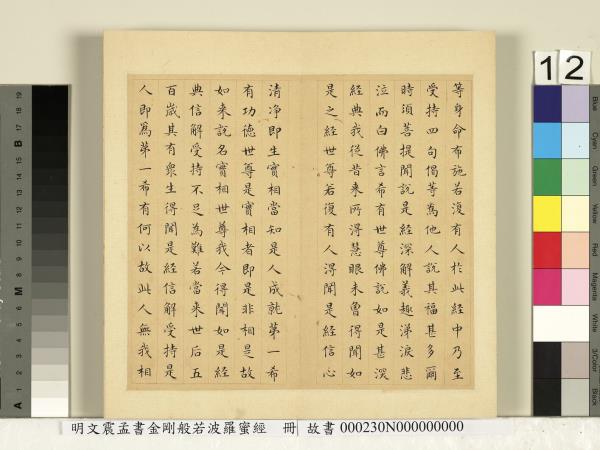 等身命布施若復有人於此經中乃至
受持四句偈等為他人說其福甚多爾
時須菩提聞說是經深解義趣涕淚悲
泣而白佛言希有世尊佛說如是甚深
經典我從昔來所得慧眼未曾得聞如
是之經世尊若復有人得聞是經信心
清淨即生實相當知是人成就第一希
有功德世尊是實相者即是非相是故
如來說名實相世尊我今得聞如是經
典信解受持不足為難若當來世后五
百歲其有衆生得聞是經信解受持是
人即爲第一希有何以故此人無我相
明文震孟書金剛般若波羅蜜經 冊 故書 000230N000000000
12
Blue
Cyan
Green
Yellow
Red
Magenta
White
3/Color
Black